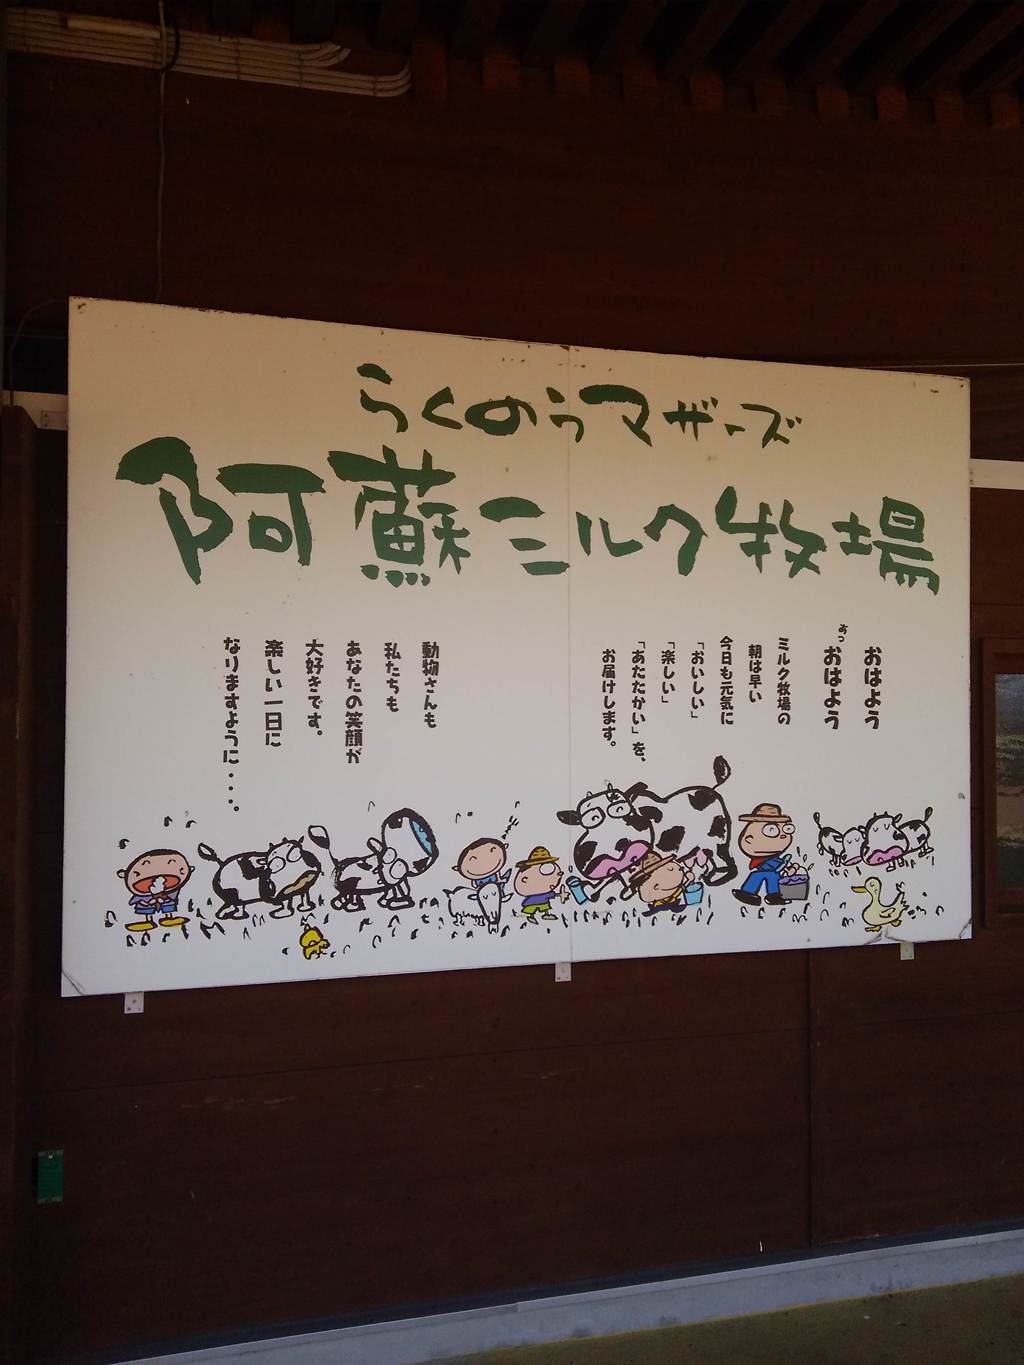 らくのうマザーズ
阿蘇ミルク牧場
おはよう
あっ おはよう
ミルク牧場の
朝は早い
今日も元気に
「おいしい」
「楽しい」
「あたたかい」を、
お届けします。
動物さんも
私たちも
あなたの笑顔が
大好きです。
楽しい一日に
なりますように・・・・。